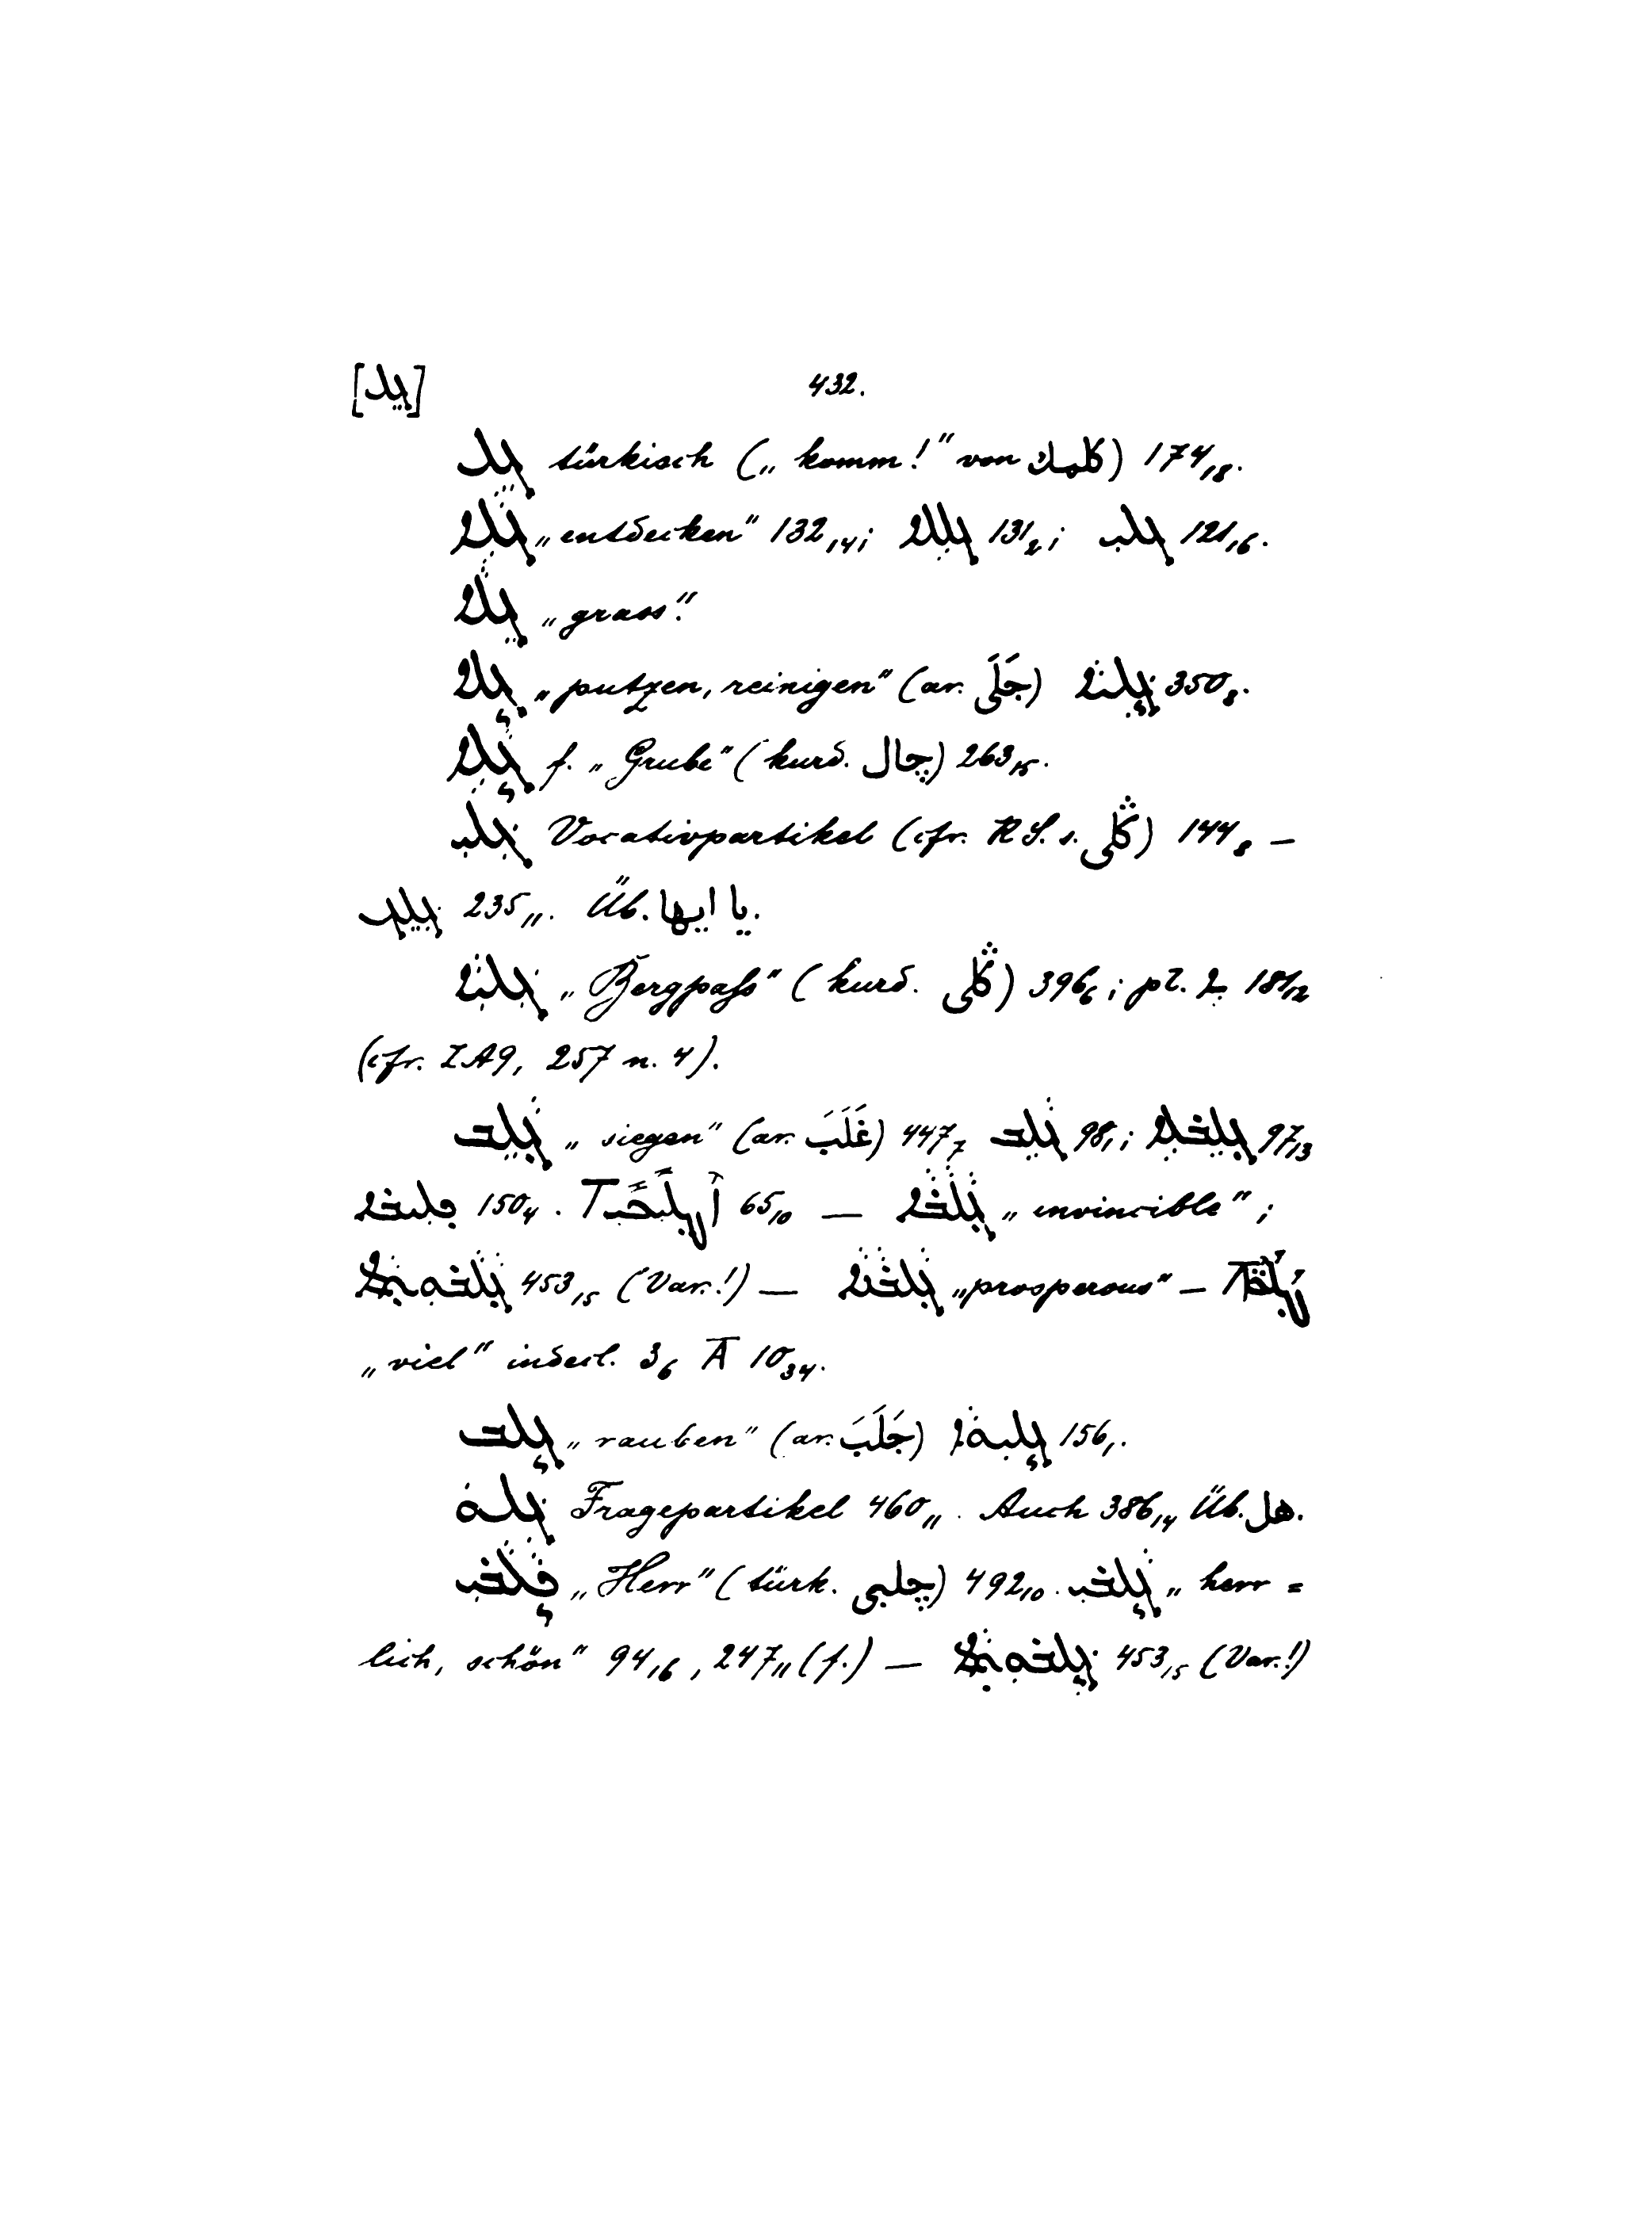 [ܓܠ] 432.
ܓܠ türkisch („komm!“ von كلمك) 174,18.
ܓܠܐ „entdecken“ 132,14; 131,2; ܓܠܝ 121,16.
ܓܠܐ „grass“.
ܓܠܐ „putzen, reinigen“ (ar. جَلَى) 350,8.
ܓܠܐ f. „Grube“ (kurd. چال) 263,15.
ܓܠܝ Vocativpartikel (cfr. RS. s. ڭلى) 144,8 —
235,11. Üb. يا ايها.
ܓܠܝܐ „Bergpaß“ (kurd. ڭلى) 396,6; pl. 181,12
(cfr. ZA9, 257 n. 4).
ܓܠܒ „siegen“ (ar. غَلَبَ) 447,7 ܓܠܒ 98,1; 97,13
150,4. 65,10 — ܓܠܒܐ „invincible“;
453,15 (Var.!) — ܓܠܒܢܐ „prosperous“ —
„viel“ indecl. 3,6 Ā 10,34.
ܓܠܒ „rauben“ (ar. جَلَبَ) 156,1.
ܓܠܘ Fragepartikel 460,11. Auch 386,14 Üb. هل.
„Herr“ (türk. چلبى) 492,10. ܓܠܒܝ „herr=
lich, schön“ 94,16, 247,11 (f.) — 453,15 (Var.!)